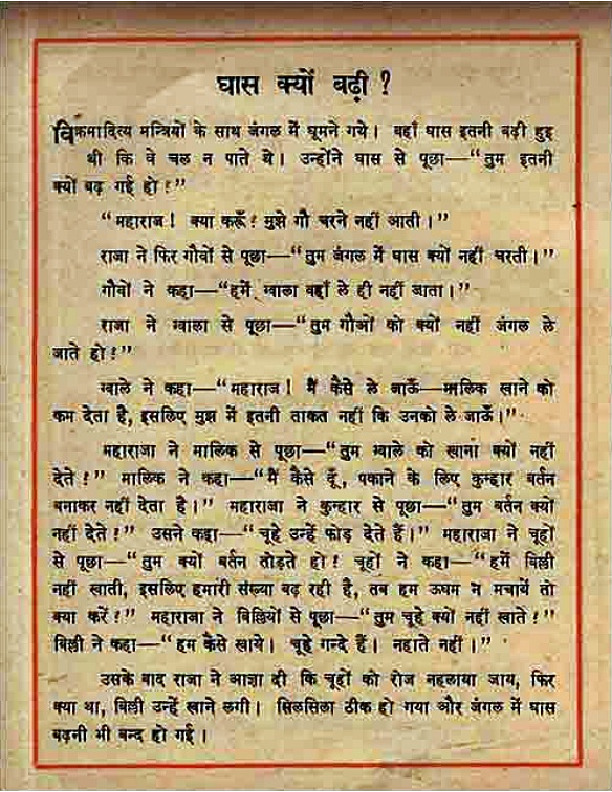 घास क्यों बढ़ी ?
विक्रमादित्य मन्त्रियों के साथ जंगल में घूमने गये। वहाँ घास इतनी बढ़ी हुई
थी कि वे चल न पाते थे। उन्होंने घास से पूछा—“तुम इतनी
क्यों बढ़ गई हो!”
“महाराज! क्या करूँ! मुझे गौ चरने नहीं आती।”
राजा ने फिर गौवों से पूछा—“तुम जंगल में घास क्यों नहीं चरती।”
गौवों ने कहा—“हमें ग्वाला वहाँ ले ही नहीं जाता।”
राजा ने ग्वाला से पूछा—“तुम गौओं को क्यों नहीं जंगल ले
जाते हो!”
ग्वाले ने कहा—“महाराज! मैं कैसे ले जाऊँ—मालिक खाने को
कम देता है, इसलिए मुझ में इतनी ताकत नहीं कि उनको ले जाऊँ।”
महाराजा ने मालिक से पूछा—“तुम ग्वाले को खाना क्यों नहीं
देते!” मालिक ने कहा—“मैं कैसे दूँ, पकाने के लिए कुन्हार बर्तन
बनाकर नहीं देता है।” महाराजा ने कुन्हार से पूछा—“तुम बर्तन क्यों
नहीं देते!” उसने कहा—“चूहे उन्हें फोड़ देते हैं।” महाराजा ने चूहों
से पूछा—“तुम क्यों बर्तन तोड़ते हो! चूहों ने कहा—“हमें बिल्ली
नहीं खाती, इसलिए हमारी संख्या बढ़ रही है, तब हम ऊधम न मचायें तो
क्या करें!” महाराजा ने बिल्लियों से पूछा—“तुम चूहे क्यों नहीं खाते!”
बिल्ली ने कहा—“हम कैसे खाये। चूहे गन्दे हैं। नहाते नहीं।”
उसके बाद राजा ने आज्ञा दी कि चूहों को रोज नहलाया जाय, फिर
क्या था, बिल्ली उन्हें खाने लगी। सिलसिला ठीक हो गया और जंगल में घास
बढ़नी भी बन्द हो गई।